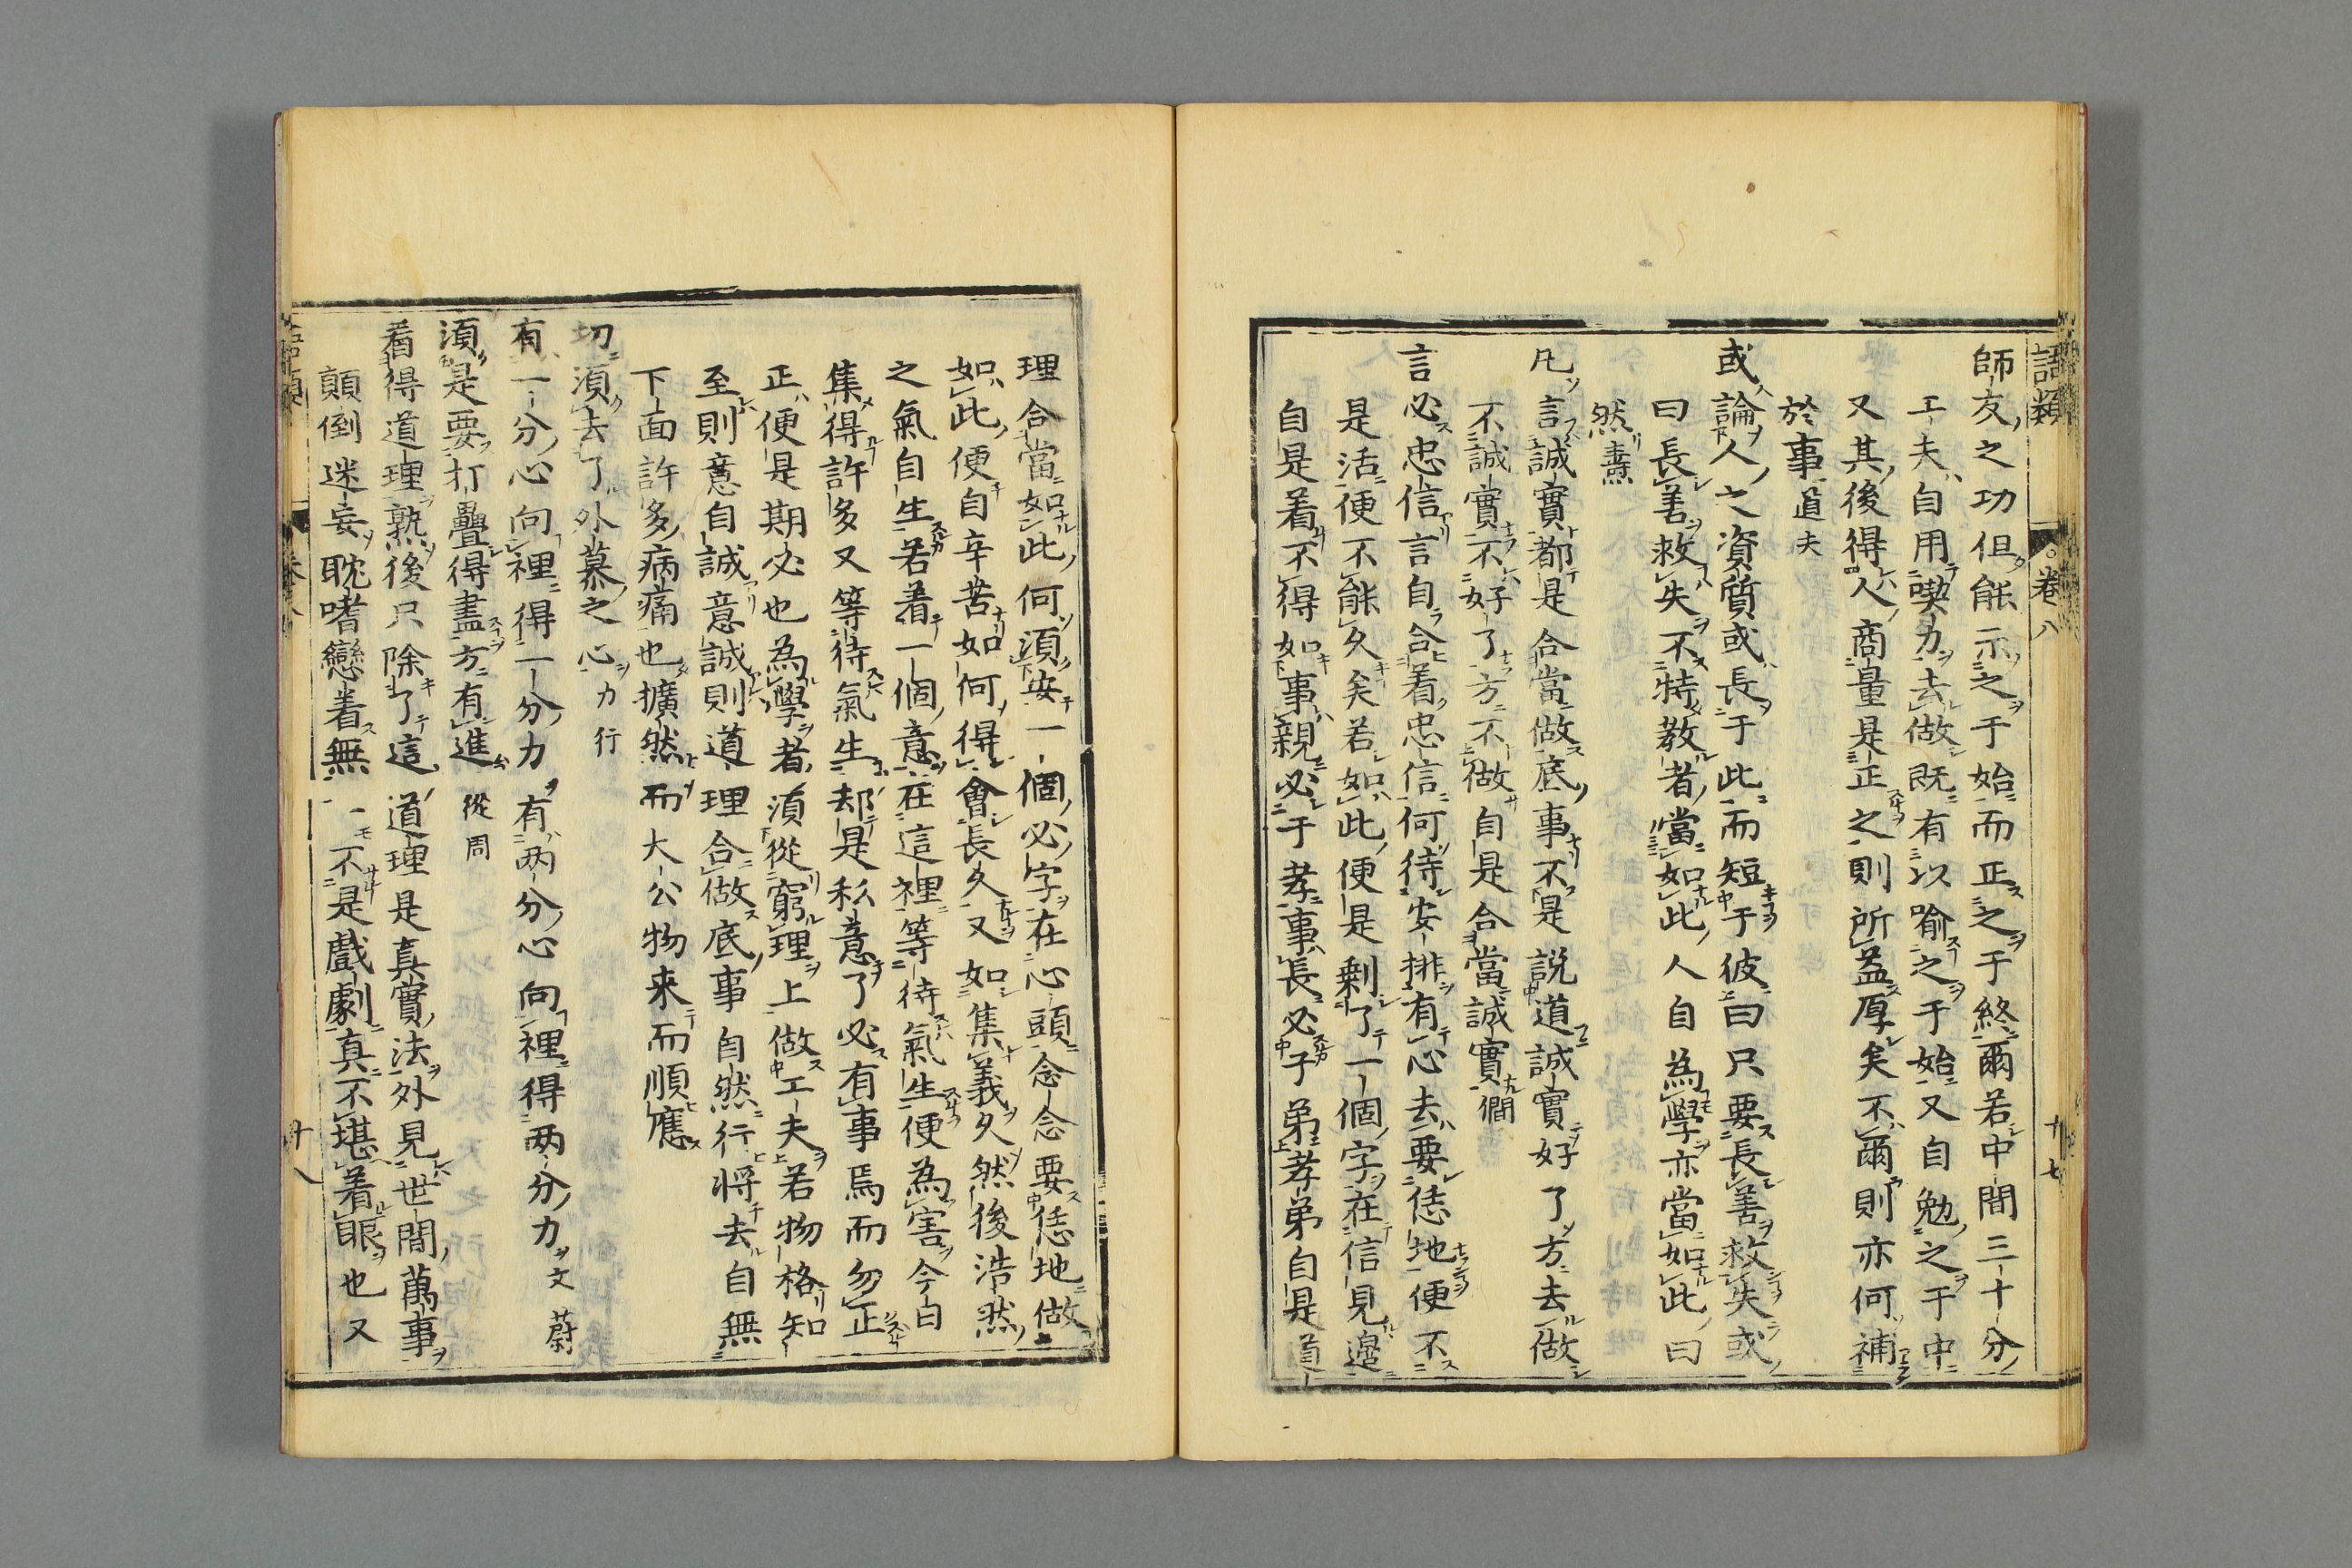 語類
卷八
十七
師友之功但能示之于始而正之于終爾若中間三十分
工夫自用喫力去做既有以喻之于始又自勉之于中
又其後得人商量是正之則所益厚矣不爾則亦何補
於事道夫
或論人之資質或長于此而短于彼曰只要長善救失或
曰長善救失不特教者當如此人自為學亦當如此曰
然燾
凡言誠實都是合當做底事不是説道誠實好了方去做
不誠實不好了方不做自是合當誠實僩
言必忠信言自合着忠信何待安排有心去要恁地便不
是活便不能久矣若如此便是剩了一個字在信見邉
自是着不得如事親必于孝事長必于弟孝弟自是道
理合當如此何須安一個必字在心頭念念要恁地做
如此便自辛苦如何得會長久又如集義久然後浩然
之氣自生若着一個意在這裡等待氣生便為害今白
集得許多又等待氣生却是私意了必有事焉而勿正
正便是期必也為學者須從窮理上做工夫若物格知
至則意自誠意誠則道理合做底事自然行將去自無
下面許多病痛也擴然而大公物来而順應
切須去了外慕之心力行
有一分心向裡得一分力有兩分心向裡得兩分力文蔚
須是要打疊得盡方有進從周
看得道理熟後只除了這道理是真實法外見世間萬事
顛倒迷妄耽嗜戀着無一不是戲劇真不堪着眼也又
語類
卷八
十八